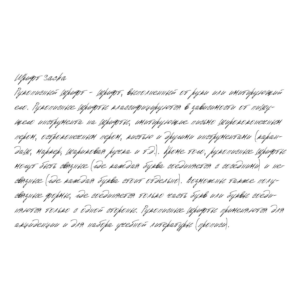 Шрифт Zaсва
Рукописный шрифт - шрифт, выполненный от руки или имитирующий
его. Рукописные шрифты классифицируются в зависимости от пишу-
щего инструмента на шрифты, имитирующие письмо ширококонечным
пером, остроконечным пером, кистью и другими инструментами (каран-
даш, маркер, шариковая ручка и т.д.). Кроме того, рукописные шрифты
могут быть связные (где каждая буква соединяется с соседними) и не-
связные (где каждая буква стоит отдельно). Возможны также полу-
связные формы, где соединяется только часть букв или буквы соеди-
няются только с одной стороны. Рукописные шрифты применяются для
акциденции и для набора учебной литературы (прописи).